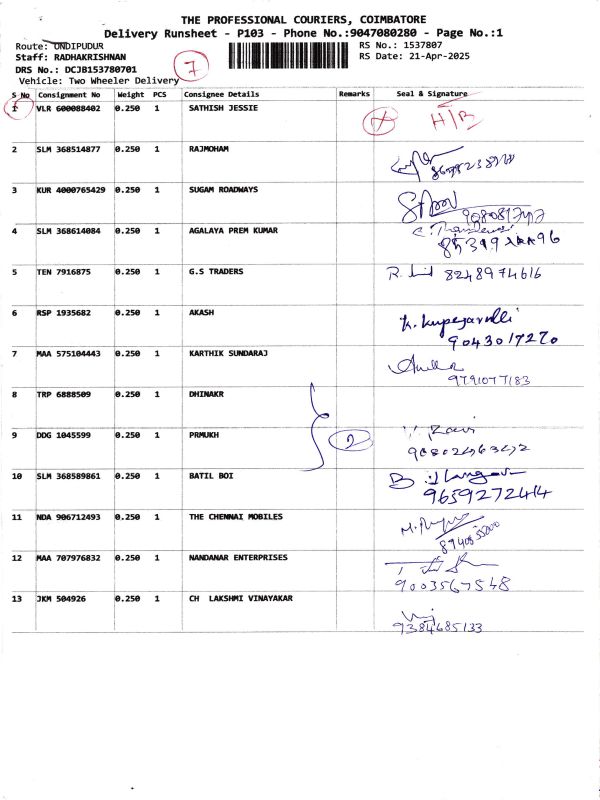 THE PROFESSIONAL COURIERS, COIMBATORE
Delivery Runsheet - P103 - Phone No.:9047080280 - Page No.:1
Route: ONDIPUDUR
Staff: RADHAKRISHNAN
DRS No.: DCJB153780701
Vehicle: Two Wheeler Delivery
7
RS No.: 1537807
RS Date: 21-Apr-2025
S No Consignment No Weight PCS Consignee Details Remarks Seal & Signature
1 VLR 600088402 0.250 1 SATHISH JESSIE H/B
2 SLM 368514877 0.250 1 RAJMOHAM
3 KUR 4000765429 0.250 1 SUGAM ROADWAYS
4 SLM 368614084 0.250 1 AGALAYA PREM KUMAR
5 TEN 7916875 0.250 1 G.S TRADERS 8248974616
6 RSP 1935682 0.250 1 AKASH
9043017270
7 MAA 575104443 0.250 1 KARTHIK SUNDARAJ
9791077183
8 TRP 6888509 0.250 1 DHINAKR
9 DDG 1045599 0.250 1 PRMUKH 2 Ravi
10 SLM 368589861 0.250 1 BATIL BOI
9659272414
11 NDA 906712493 0.250 1 THE CHENNAI MOBILES
12 MAA 707976832 0.250 1 NANDANAR ENTERPRISES
9003567548
13 JKM 504926 0.250 1 CH LAKSHMI VINAYAKAR
9384685133